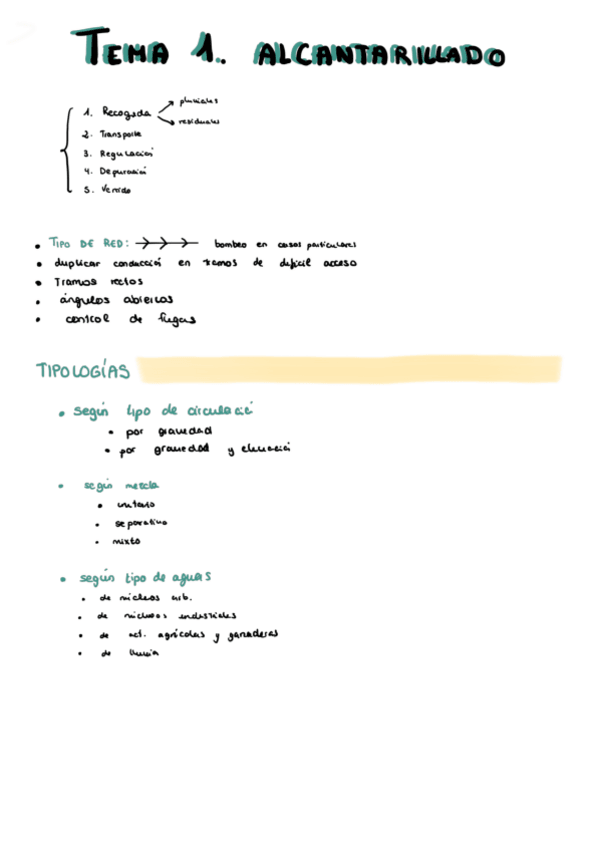 TEMA 1. ALCANTARILLADO
1. Recogida
pluviales
residuales
2. Transporte
3. Regulació
4. Depuració
5. Vertido
• TIPO DE RED: bombeo en casos particulares
• duplicar conducció en tramos de dificil acceso
• Tramos rectos
• ángulos abiertos
• control de fugas
TIPOLOGÍAS
• según tipo de circulació
• por gravedad
• por gravedad y elevació
• según mezcla
• unitario
• separativo
• mixto
• según tipo de aguas
• de núcleos urb.
• de núcleos industriales
• de act. agrícolas y ganaderas
• de lluvia